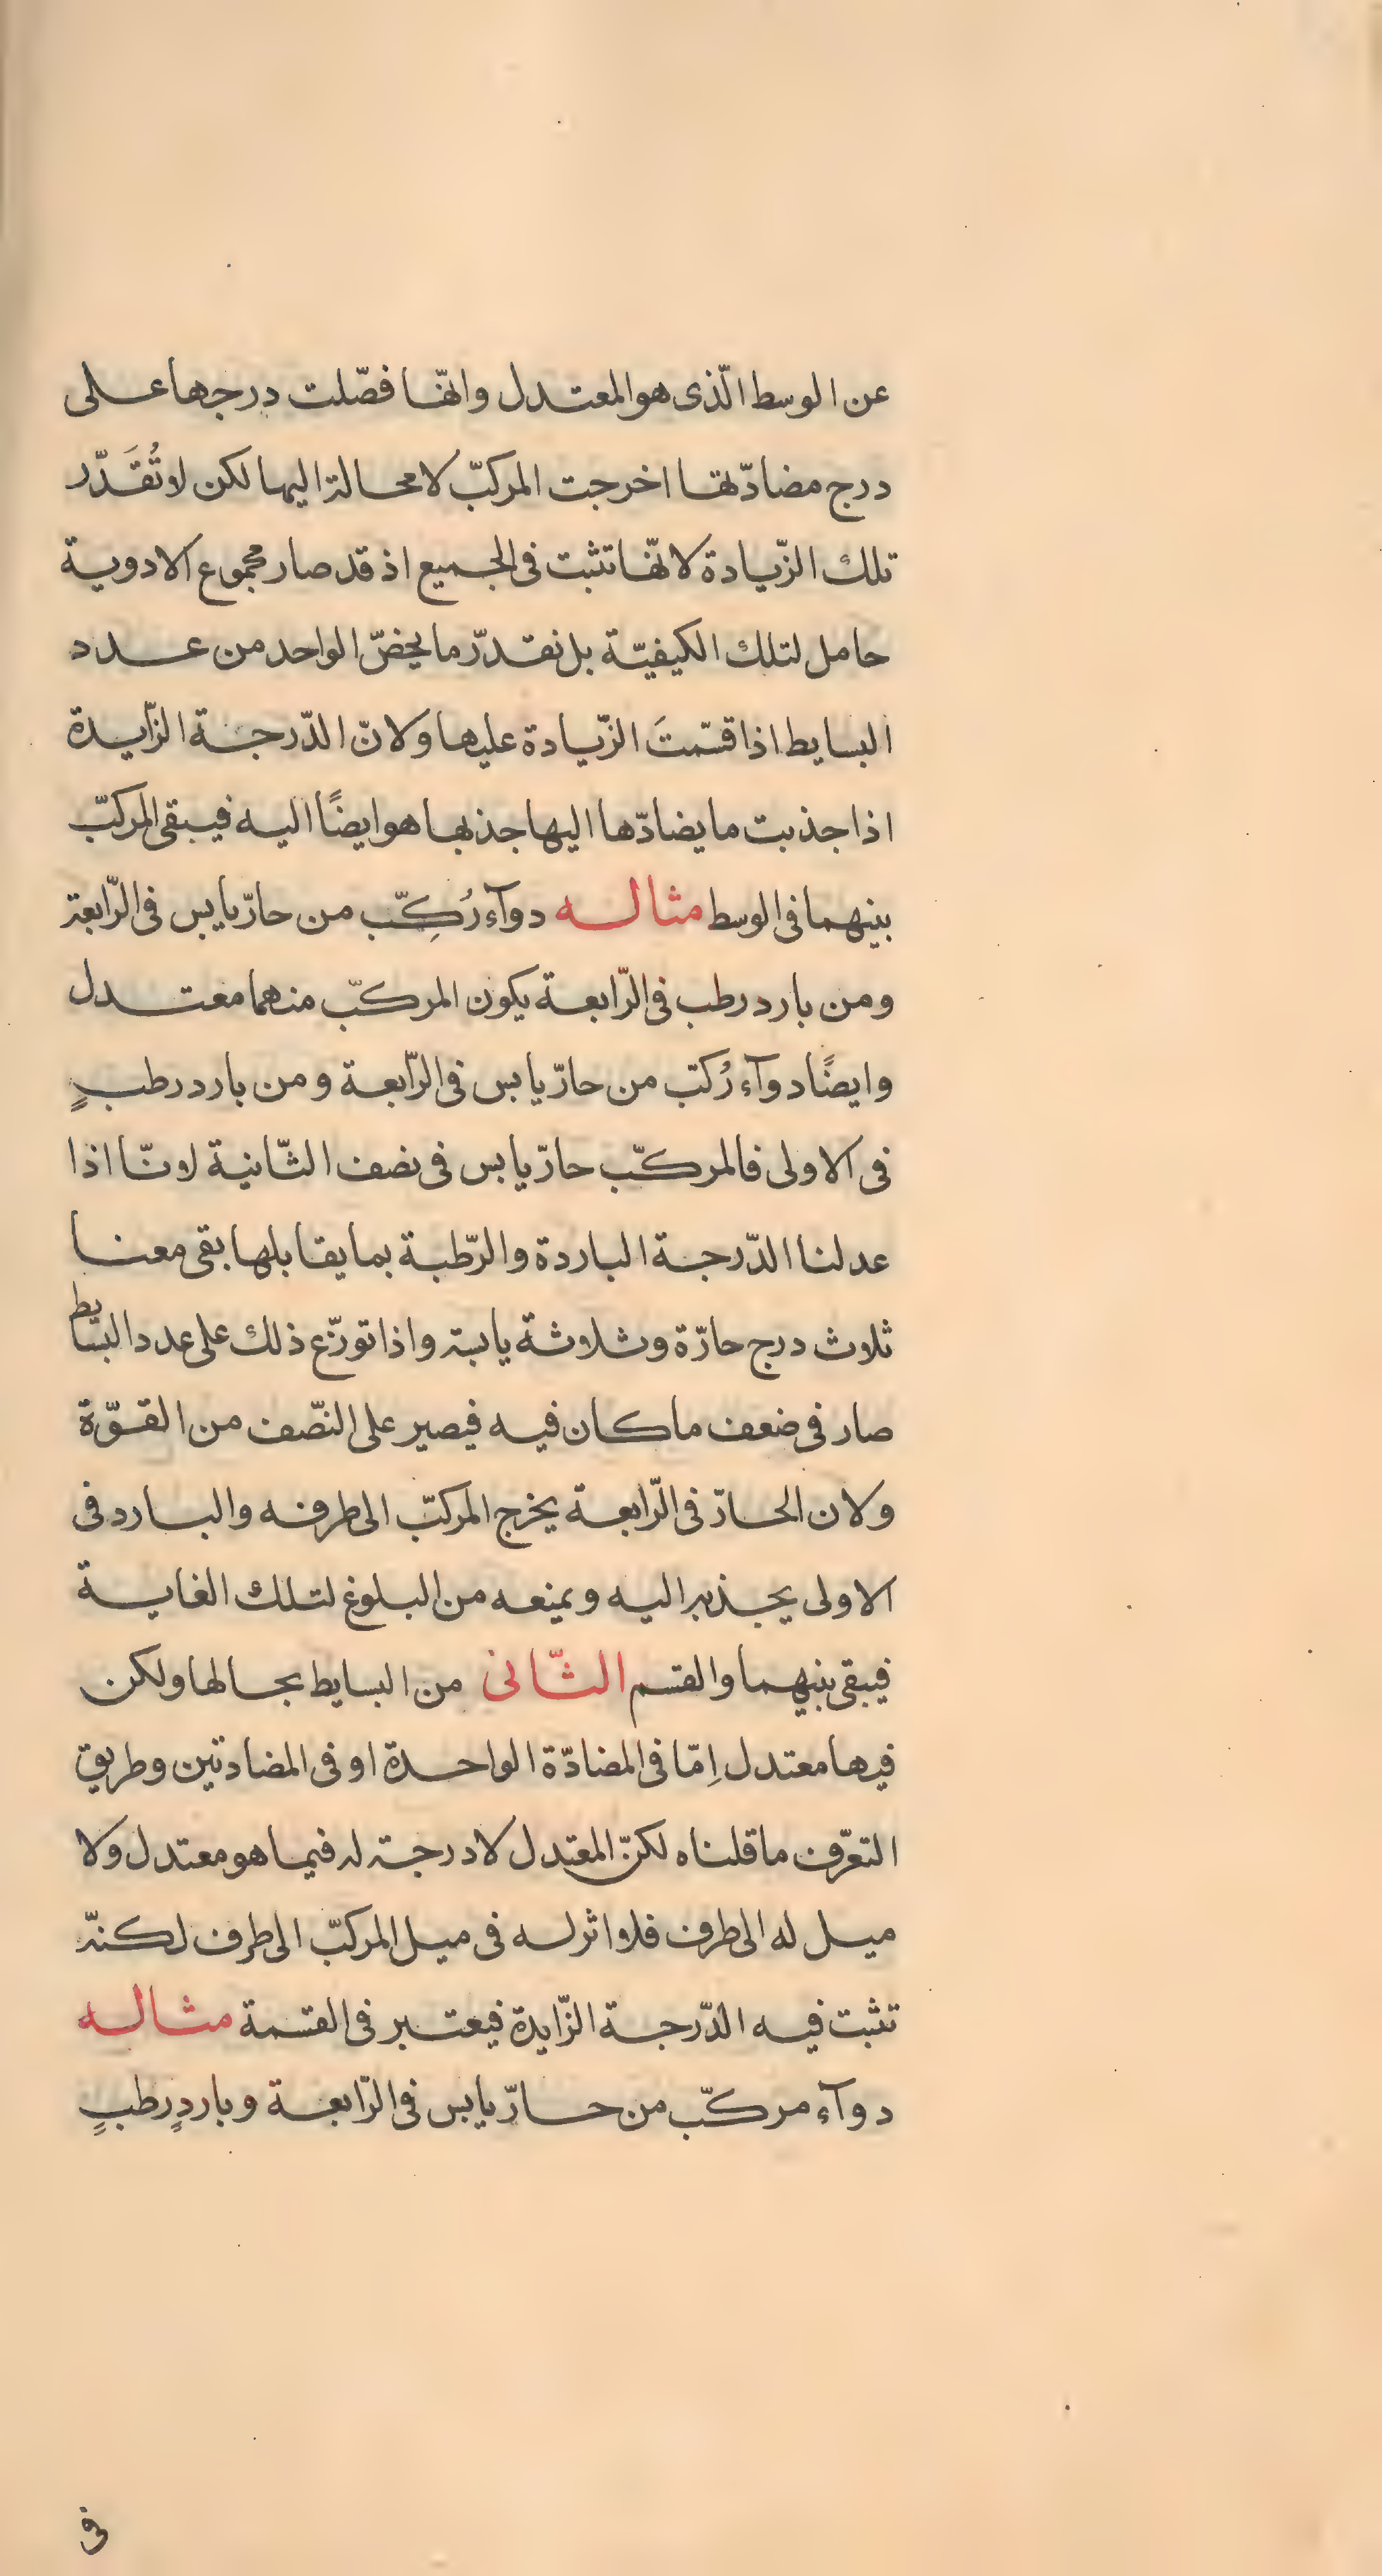 عن الوسط الّذى هو المعتدل وانّها فضّلت درجها على
درج مضادّتها اخرجت المركّب لا محالة اليها لكن لا تُقَدّر
تلك الزّيادة لانّها تثبت فى الجميع اذ قد صار مجموع الادوية
حامل لتلك الكيفيّة بل نقدّر ما يخصّ الواحد من عدد
البسايط اذا قسّمتَ الزّيادة عليها ولانّ الدّرجة الزّايدة
اذا جذبت ما يضادّها اليها جذبها هو ايضًا اليه فيبقى المركّب
بينهما فى الوسط مثاله دوآء رُكِّب من حارّ يابس فى الرّابعة
ومن بارد رطب فى الرّابعة يكون المركّب منهما معتدل
وايضًا دوآء رُكّب من حارّ يابس فى الرّابعة ومن بارد رطبٍ
فى الاولى فالمركّب حارّ يابس فى نصف الثّانية لانّا اذا
عدلنا الدّرجة الباردة والرّطبة بما يقابلها بقى معنا
ثلاث درج حارّة وثلاثة يابسة واذا توزّع ذلك على عدد البسايط
صار فى ضعف ما كان فيه فيصير على النّصف من القوّة
ولان الحارّ فى الرّابعة يخرج المركّب الى طرفه والبارد فى
الاولى يجذبه اليه ويمنعه من البلوغ لتلك الغاية
فيبقى بينهما والقسم الثّانى من البسايط بحالها ولكن
فيها معتدل اِمّا فى المضادّة الواحدة او فى المضادتين وطريق
التعرّف ما قلناه لكنّ المعتدل لا درجة له فيما هو معتدل ولا
ميل له الى طرف فلا اثر له فى ميل المركّب الى طرف لكنّه
تثبت فيه الدّرجة الزّايدة فيعتبر فى القسمة مثاله
دوآء مركّب من حارّ يابس فى الرّابعة وباردٍ رطبٍ
فى